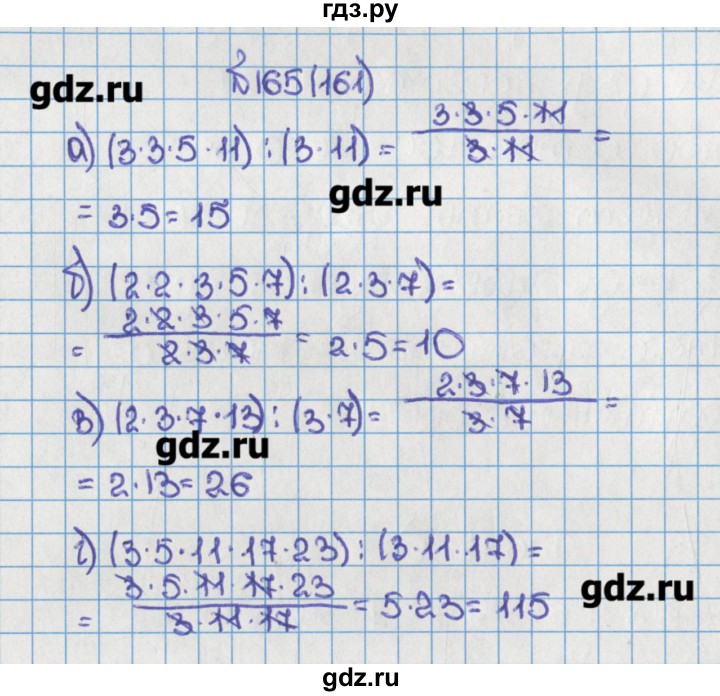 гдз.ру
№165(161)
gdz.ru
а) (3·3·5·11):(3·11)= 3·3·5·11 / 3·11 =
gdz.ru
= 3·5=15
б) (2·2·3·5·7):(2·3·7)=
= 2·2·3·5·7 / 2·3·7 = 2·5=10
в) (2·3·7·13):(3·7)= 2·3·7·13 / 3·7 =
gdz.ru
= 2·13=26
г) (3·5·11·17·23):(3·11·17)=
= 3·5·11·17·23 / 3·11·17 = 5·23=115
gdz.ru
gdz.ru